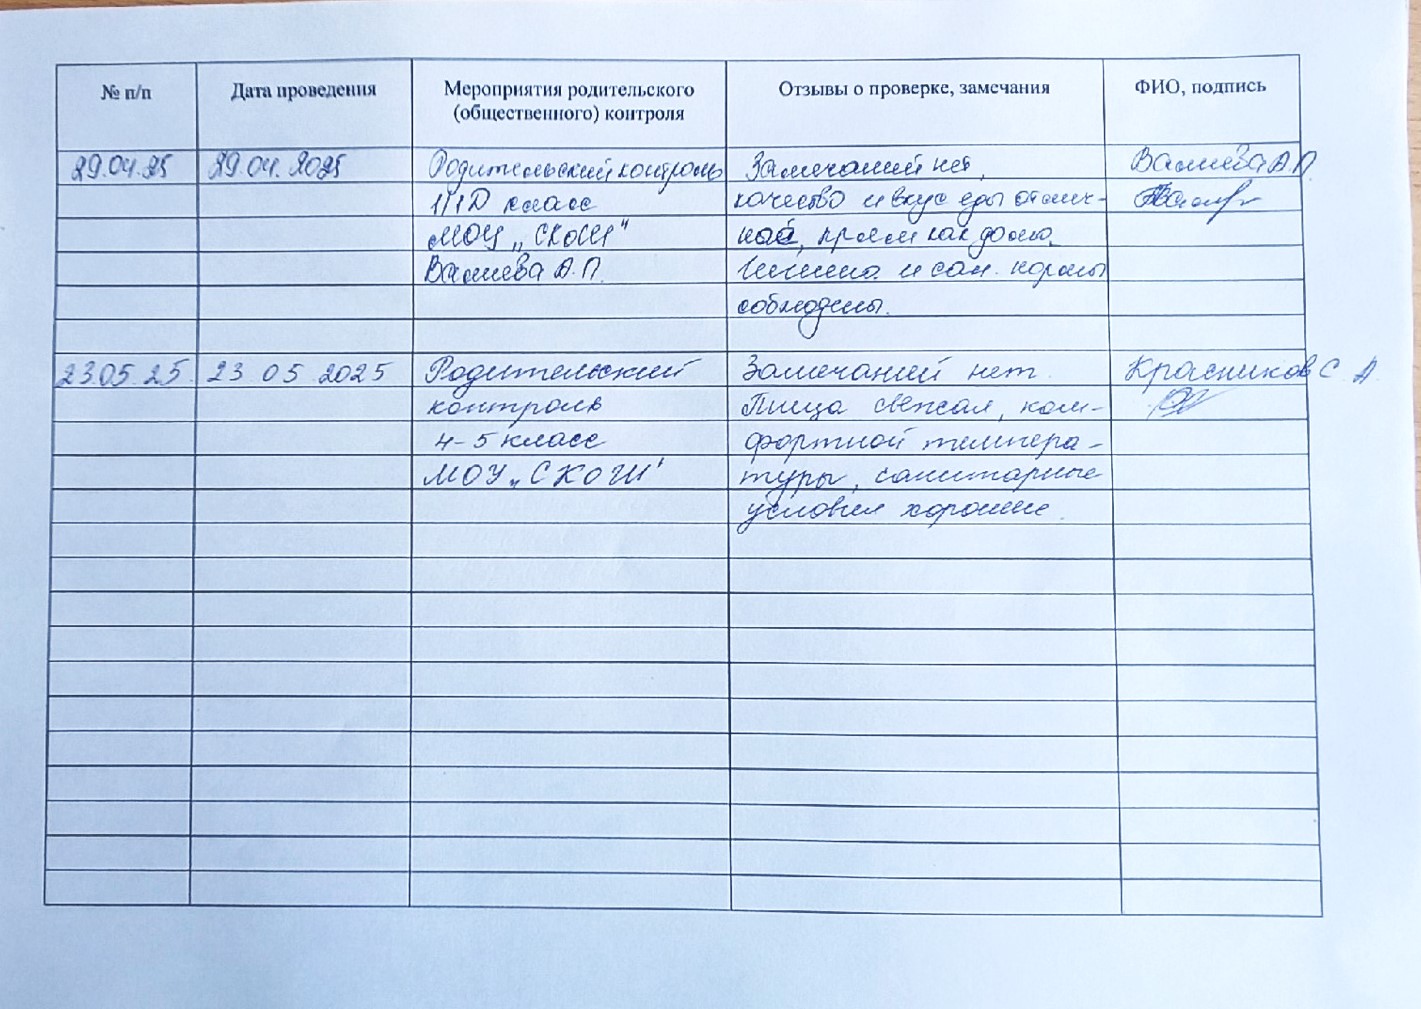 № п/п
Дата проведения
Мероприятия родительского
(общественного) контроля
Отзывы о проверке, замечания
ФИО, подпись
29.04.25 29.04.2025 Родительский контроль Замечаний нет, Валиева А.П.
1 класс качество и вкус еды отлич-
МОУ „СКОШ" ная, прям как дома.
Валиева А.П. Гигиена и сан. нормы
соблюдены.
23.05.25 23 05 2025 Родительский Замечаний нет. Красников С. А.
контроль Пища свежая, ком-
4-5 класс фортной темпера-
МОУ „СКОШ" туры, санитарные
условия хорошие.